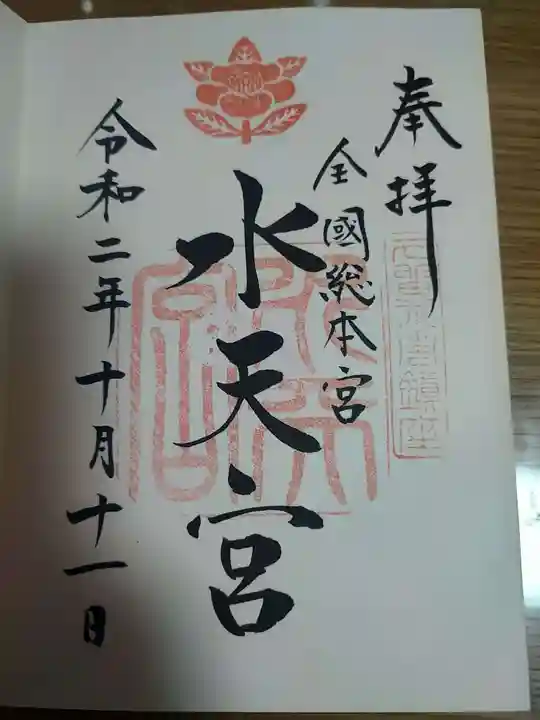 奉拝
全國総本宮
水天宮
令和二年十月十一日